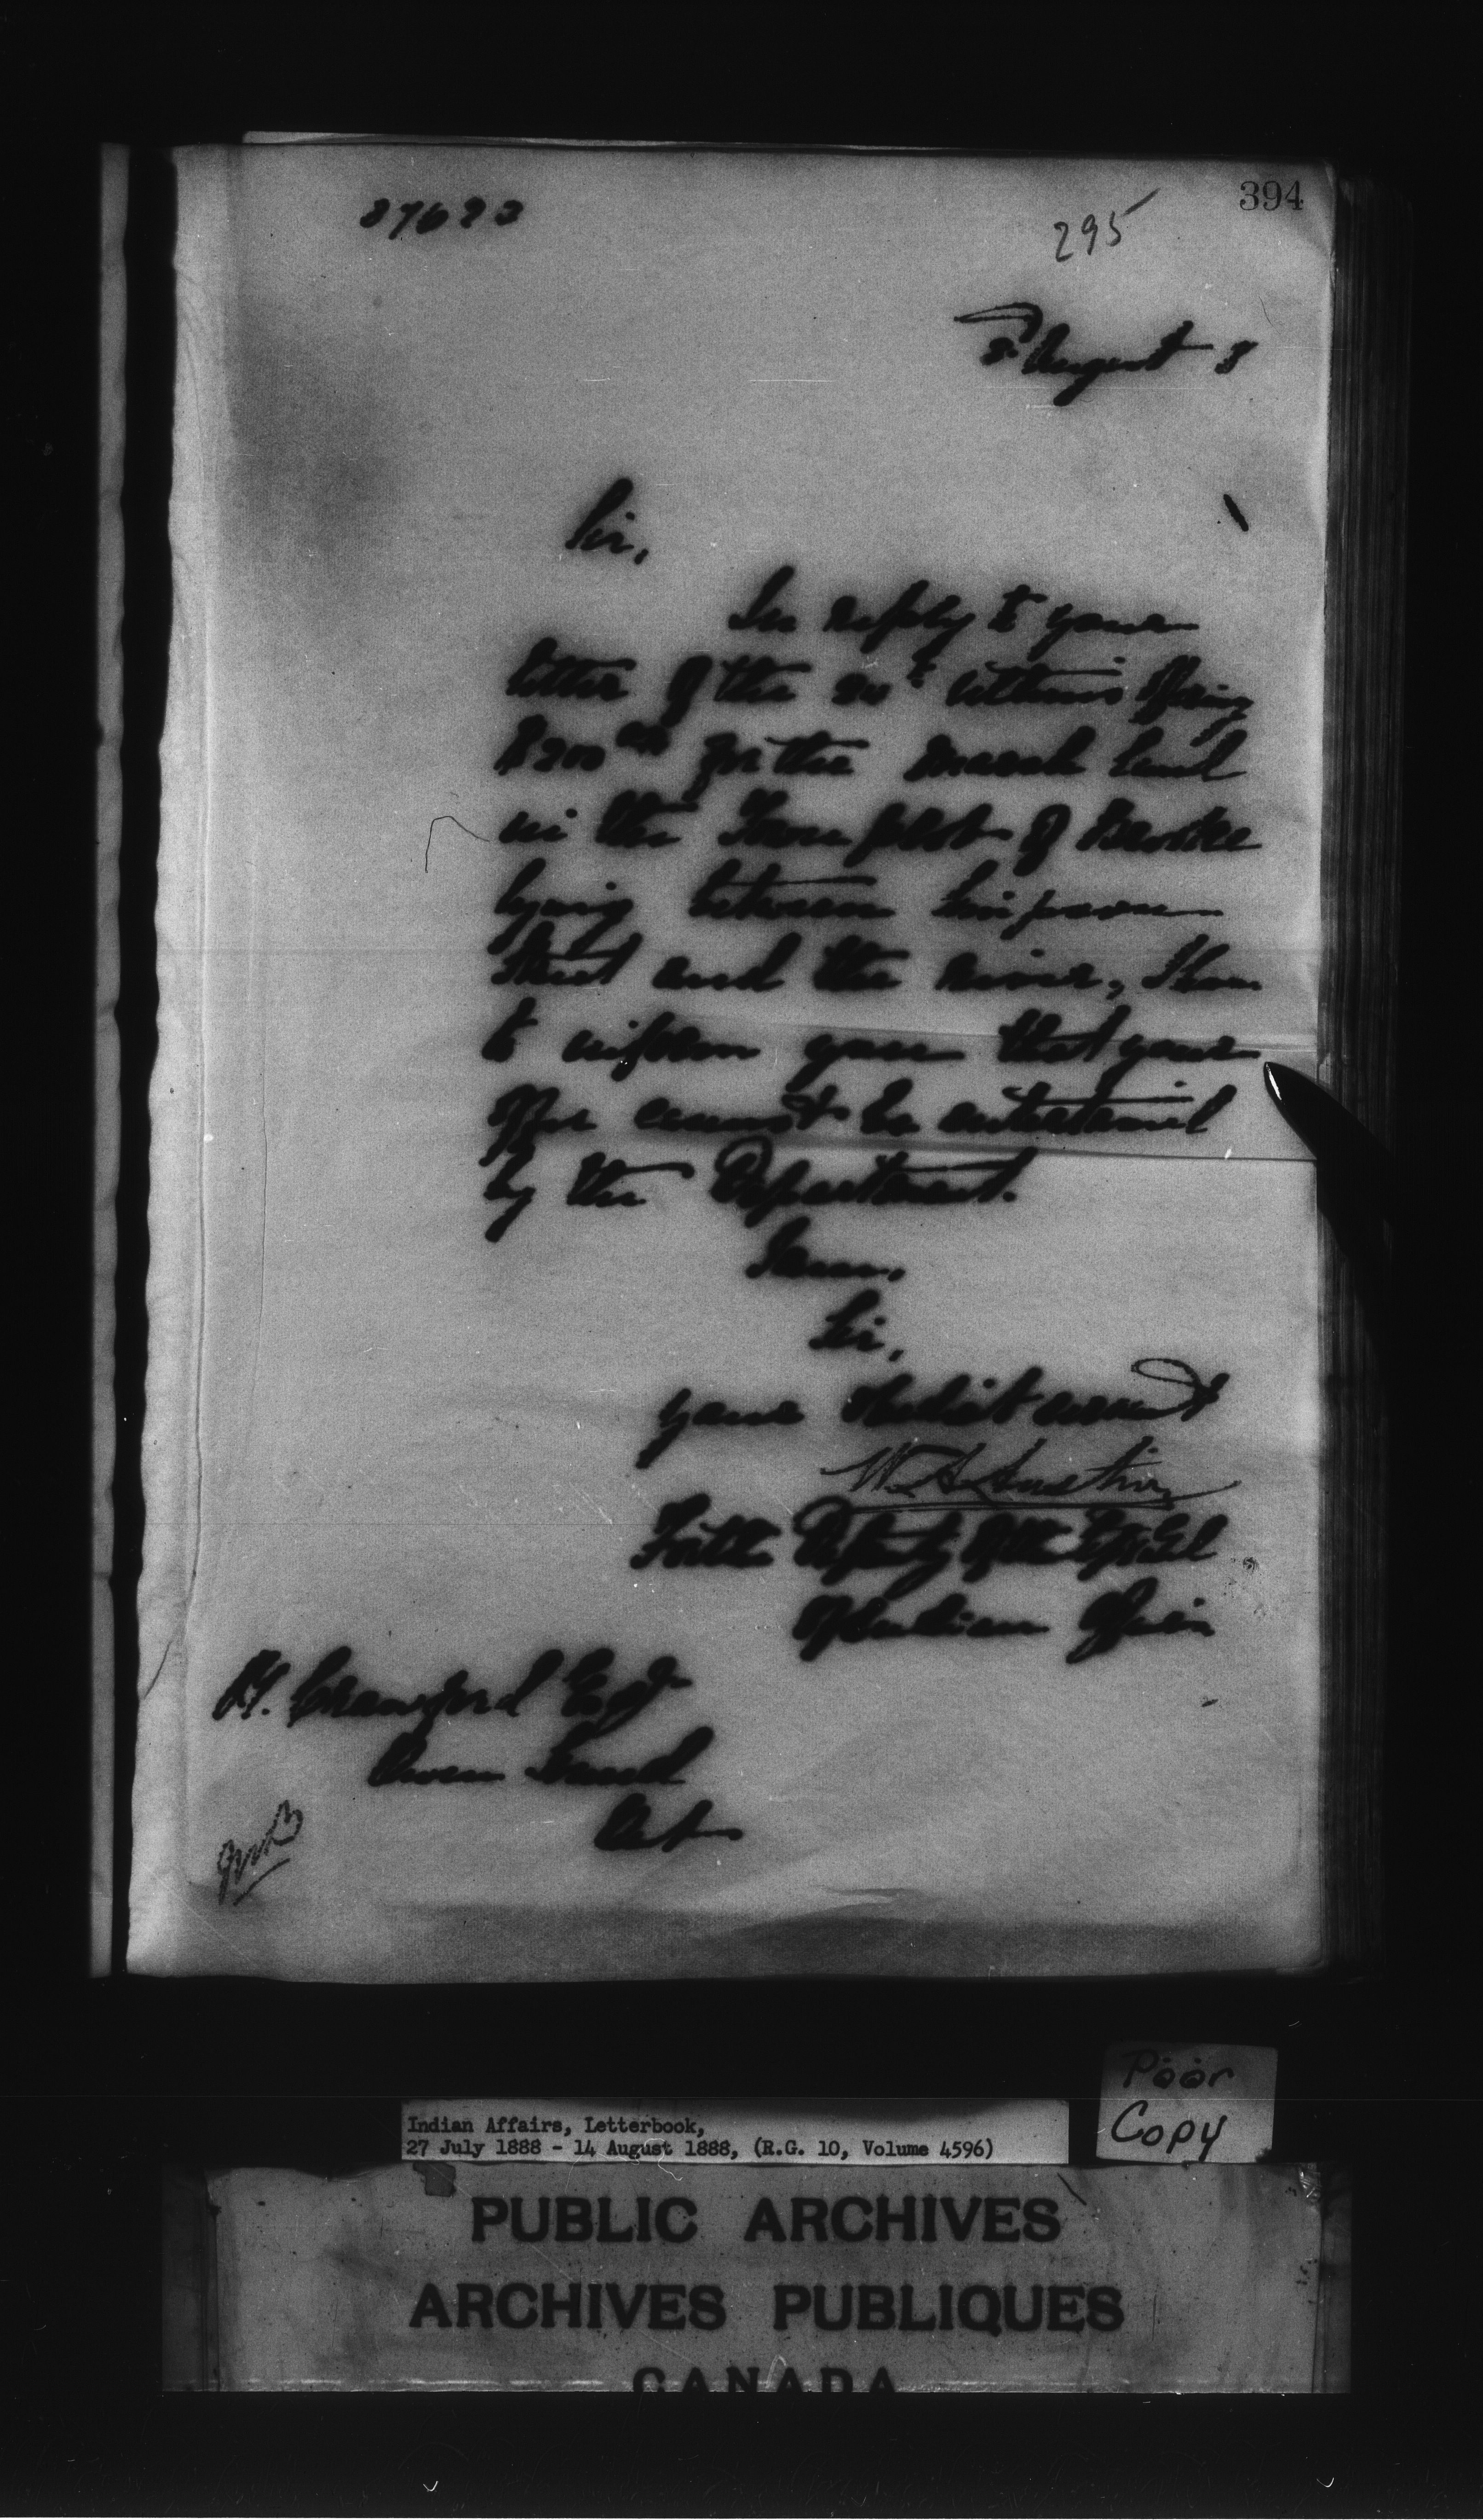 394
295
August 8
Sir,
In reply to your
letter of the ultimo offering
$200 for the marsh land
in the Town plot of Brooke
lying between Simpson
Street and the river, I have
to inform you that your
offer cannot be entertained
by the Department.
I am,
Sir,
Your obedient servant
W. A. Austin
For the Deputy of the Supt. Genl
of Indian Affairs
H. Crawford Esqr
Owen Sound
Ont
Poor
Copy
Indian Affairs, Letterbook,
27 July 1888 - 14 August 1888, (R.G. 10, Volume 4596)
PUBLIC ARCHIVES
ARCHIVES PUBLIQUES
CANADA